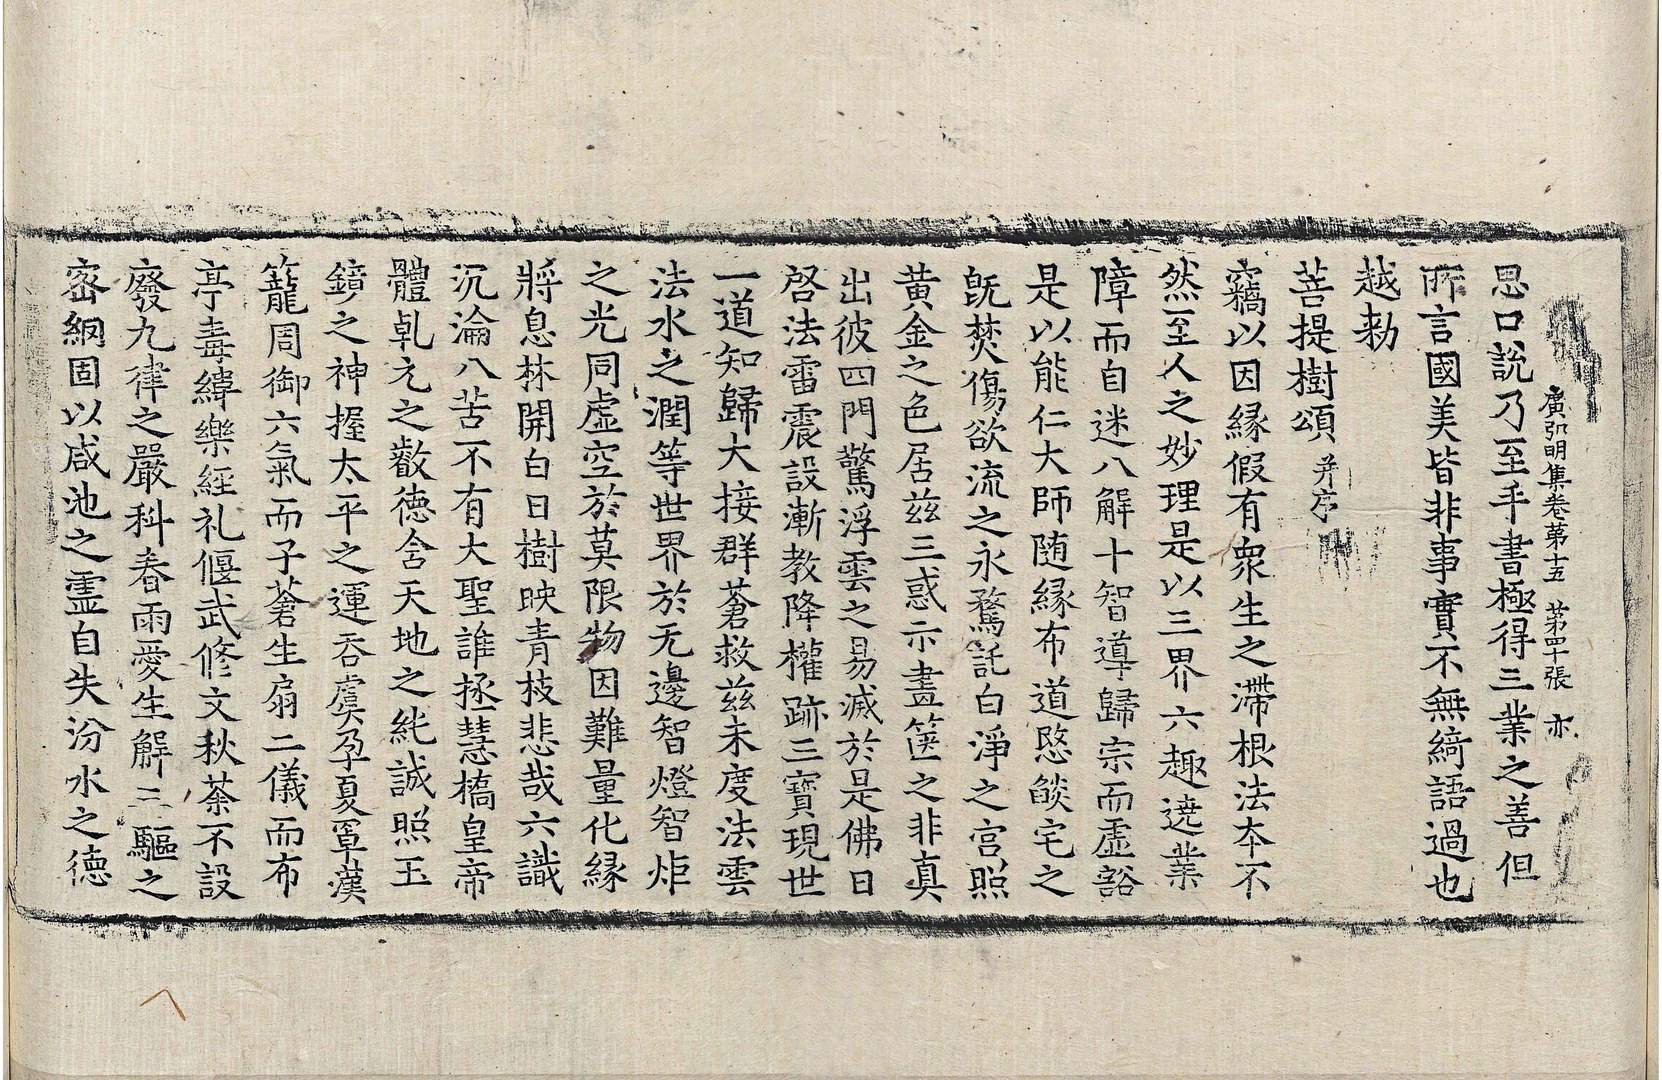 廣弘明集卷第十五 第四十張 亦
思口說乃至手書極得三業之善但
所言國美皆非事實不無綺語過也
越勑
菩提樹頌 并序
竊以因緣假有衆生之滯根法本不
然至人之妙理是以三界六趣遶業
障而自迷八解十智導歸宗而虛豁
是以能仁大師随緣布道愍燄宅之
旣焚傷欲流之永騖託白淨之宫照
黃金之色居兹三惑示畫篋之非真
出彼四門驚浮雲之易滅於是佛日
啓法雷震設漸教降權跡三寶現世
一道知歸大接群蒼救兹未度法雲
法水之潤等世界於无邊智燈智炬
之光同虛空於莫限物因難量化緣
將息林開白日樹映青枝悲哉六識
沉淪八苦不有大聖誰拯慧橋皇帝
體乹元之叡德含天地之純誠照玉
鏡之神握太平之運吞虞孕夏罩漢
籠周御六氣而子蒼生扇二儀而布
亭毒緯樂經礼偃武修文秋荼不設
廢九律之嚴科春雨愛生解三驅之
密網固以咸池之靈自失汾水之德